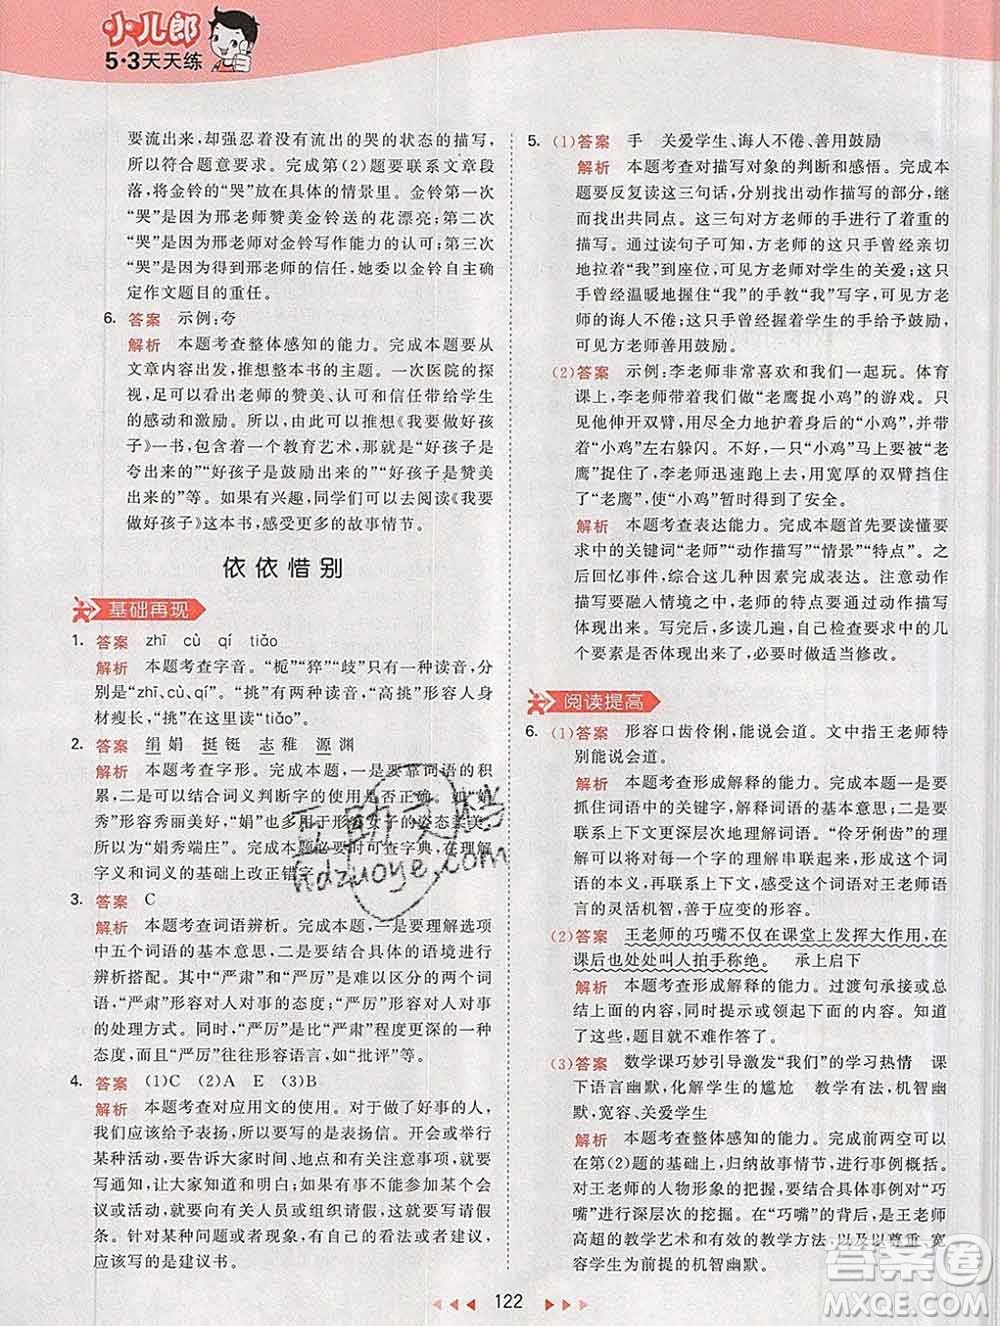 小儿郎
5·3天天练
要流出来,却强忍着没有流出的哭的状态的描写,
所以符合题意要求。完成第(2)题要联系文章段
落,将金铃的“哭”放在具体的情景里。金铃第一次
“哭”是因为邢老师赞美金铃送的花漂亮;第二次
“哭”是因为邢老师对金铃写作能力的认可;第三次
“哭”是因为得到邢老师的信任,她委以金铃自主确
定作文题目的重任。
6. 答案 示例:夸
解析 本题考查整体感知的能力。完成本题要从
文章内容出发,推想整本书的主题。一次医院的探
视,足可以看出老师的赞美、认可和信任带给学生
的感动和激励。所以,由此可以推想《我要做好孩
子》一书,包含着一个教育艺术,那就是“好孩子是
夸出来的”“好孩子是鼓励出来的”“好孩子是赞美
出来的”等。如果有兴趣,同学们可以去阅读《我要
做好孩子》这本书,感受更多的故事情节。
依依惜别
基础再现
1. 答案 zhī cù qí tiǎo
解析 本题考查字音。“栀”“猝”“歧”只有一种读音,分
别是“zhī、cù、qí”。“挑”有两种读音,“高挑”形容人身
材瘦长,“挑”在这里读“tiǎo”。
2. 答案 绢 娟 挺 铤 志 稚 源 渊
解析 本题考查字形。完成本题,一是要靠词语的积
累,二是可以结合词义判断字的使用是否正确。如“娟
秀”形容秀丽美好,“娟”多用于形容女子的姿态柔美,
所以为“娟秀端庄”。完成本题必要时可查字典,在理解
字义和词义的基础上改正错字。
3. 答案 C
解析 本题考查词语辨析。完成本题,一是要理解选项
中五个词语的基本意思,二是要结合具体的语境进行
辨析搭配。其中“严肃”和“严厉”是难以区分的两个词
语,“严肃”形容对人对事的态度;“严厉”形容对人对事
的处理方式。同时,“严厉”是比“严肃”程度更深的一种
态度,而且“严厉”往往形容语言,如“批评”等。
4. 答案 (1)C (2)A E (3)B
解析 本题考查对应用文的使用。对于做了好事的人,
我们应该给予表扬,所以要写的是表扬信。开会或举行
某种活动,要告诉大家时间、地点和有关注意事项,应该
写通知,让大家知道和明白;如果因为某种原因不能参
加会议或活动,就要向有关人员或组织请假,这时要写请假
条。针对某种问题或者现象,有自己的看法或者建议,
应该写的是建议书。
5. (1)答案 手 关爱学生、诲人不倦、善用鼓励
解析 本题考查对描写对象的判断和感悟。完成本
题要反复读这三句话,分别找出动作描写的部分,继
而找出共同点。这三句对方老师的手进行了着重的
描写。通过读句子可知,方老师的这只手曾经亲切
地拉着“我”到座位,可见方老师对学生的关爱;这只
手曾经温暖地握住“我”的手教“我”写字,可见方老
师的诲人不倦;这只手曾经用善意的手给予鼓励,
可见方老师善用鼓励。
(2)答案 示例:李老师非常喜欢和我们一起玩。体育
课上,李老师和我们一起做“老鹰捉小鸡”的游戏。
只见他伸开双臂,尽自己的全力地护着身后的小鸡,
带着“小鸡”左右躲闪。不好,一只“小鸡”马上要被“老
鹰”捉住了,李老师迅速跑上前,用宽厚的双臂挡
住了“老鹰”,使“小鸡”暂时得到了安全。
解析 本题考查表达能力。完成本题首先要读懂要
求中的关键词“老师”“动作描写”“情景”“特点”。
在回忆事件,综合这几种因素完成表达。注意动作
描写要融入情境之中,老师的特点要通过动作描写
体现出来。写完后,多读几遍,自己检查习作中的几
个要素是否体现出来,必要时做适当修改。
阅读提高
6. (1)答案 形容口齿伶俐,能说会道。文中指王老师特
别能说会道。
解析 本题考查形成解释的能力。完成本题,一是要
抓住词语中的关键字,解释词语的基本意思;二是要
联系上下文更深层次地理解词语。“伶牙俐齿”的理解
可以将每一个字的理解串联起来,就形成了这个词
语的本义,再联系全文,可以体现出这是王老师语言
的灵活机智,善于应变的形容。
(2)答案 王老师的巧嘴不仅在课堂上发挥大作用,在
课后也处处叫人拍手称绝。 承上启下
解析 本题考查形成解释的能力。过渡句承接或总
结上面的内容,同时提示或引领下面的内容。知道
了这些,题目就不难作答了。
(3)答案 数学课巧妙引导激发“我们”的学习热情 课
下语言幽默,化解学生的尴尬 教学有法,机智幽
默,宽容、关爱学生
解析 本题考查整体感知的能力。完成前两空可以
在第(2)题的基础上,归纳故事情节,进行概括。
对王老师的人物形象的把握,要透过现象,对“巧
嘴”进行深层次的挖掘。“巧嘴”的背后,是王老师
高超的教学艺术和有效的教学方法,以及尊重、宽
容为前提的机智幽默。
122
hdzuoye.com
答案圈
MXQE.COM